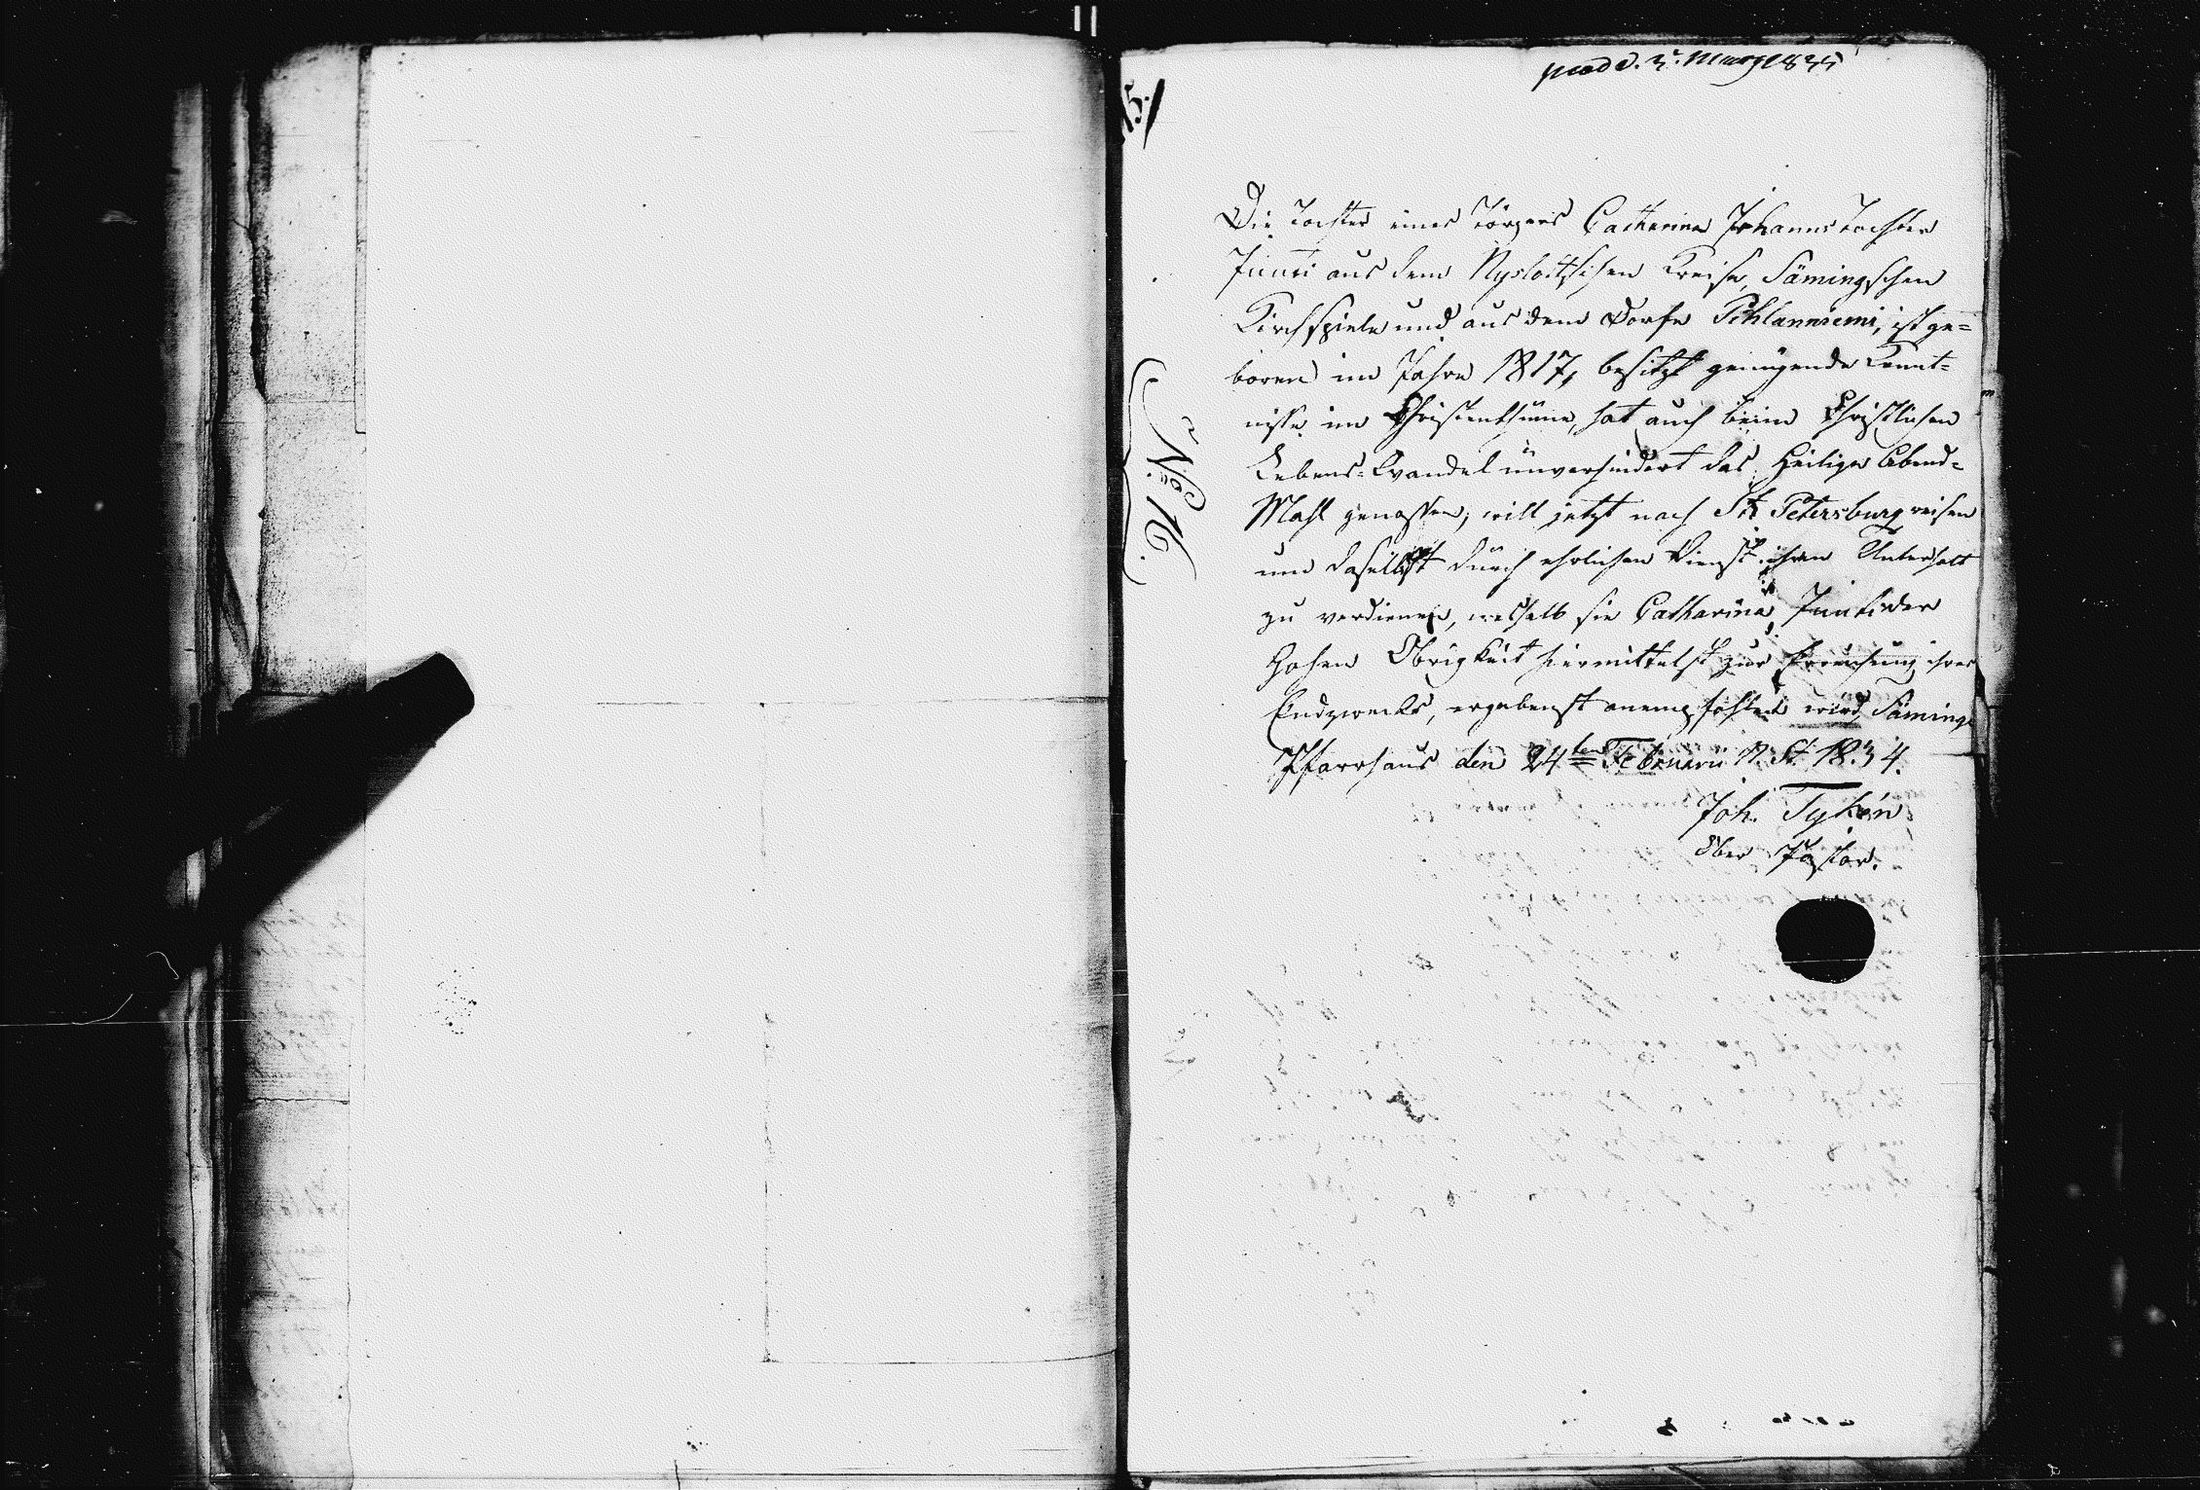 prod d. 5. März 1835
15.
No. 16.
Die Tochter eines Törpers Catharina Johannstochter
Junti aus dem Nyslottschen Kreise, Sämingschen
Kirchspiele und aus dem Dorfe Pihlanniemi, ist ge-
boren im Jahre 1817, besitzt genügende Kennt-
nisse im Christenthume, hat auch beim Christlichen
Lebens-Wandel unverhindert das Heilige Abend-
Mahl genossen; will jetzt nach St. Petersburg reisen
um daselbst durch ehrlichen Dienst ihren Unterhalt
zu verdienen, weshalb sie Catharina Junti der
Hohen Obrigkeit hiermittelst zur Erreichung ihres
Endzwecks, ergebenst anempfohlen wird, Säminge
Pfarrhaus den 24ten Februarii n. St. 1834.
Joh. Tykén
Ober Pastor.